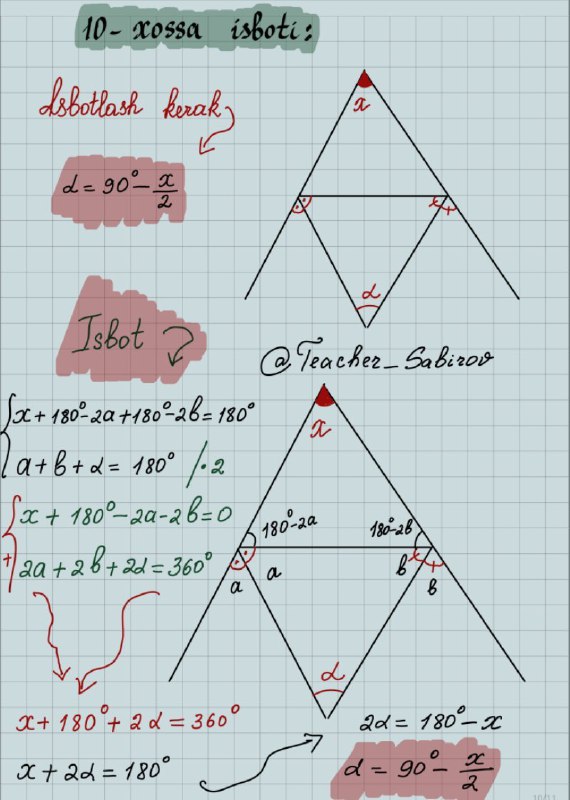 10-xossa isboti:
Isbotlash kerak
α = 90° - x/2
x
α
Isbot
@Teacher_Sabirov
{x + 180° - 2a + 180° - 2b = 180°
a + b + α = 180° /·2
{x + 180° - 2a - 2b = 0
+ 2a + 2b + 2α = 360°
x
180° - 2a
180° - 2b
a
a
b
b
α
x + 180° + 2α = 360°
x + 2α = 180°
2α = 180° - x
α = 90° - x/2